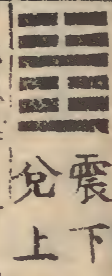 震下
兌上